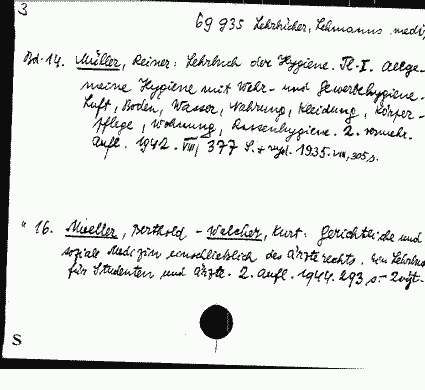 3
69 935 Lehrbücher, Lehmanns mediz
Bd. 14. Müller, Reiner: Lehrbuch der Hygiene. Tl. I. Allge-
meine Hygiene mit Wehr- und Gewerbehygiene.
Luft, Boden, Wasser, Nahrung, Kleidung, Körper-
pflege, Wohnung, Rassenhygiene. 2. vermehr.
Aufl. 1942. VIII, 377 S. 1935. VIII, 305 S.
" 16. Mueller, Berthold - Walcher, Kurt: Gerichtliche und
soziale Medizin einschliesslich des Ärzterechts. Ein Lehrbuch
für Studenten und Ärzte. 2. Aufl. 1944. 293 S.
S